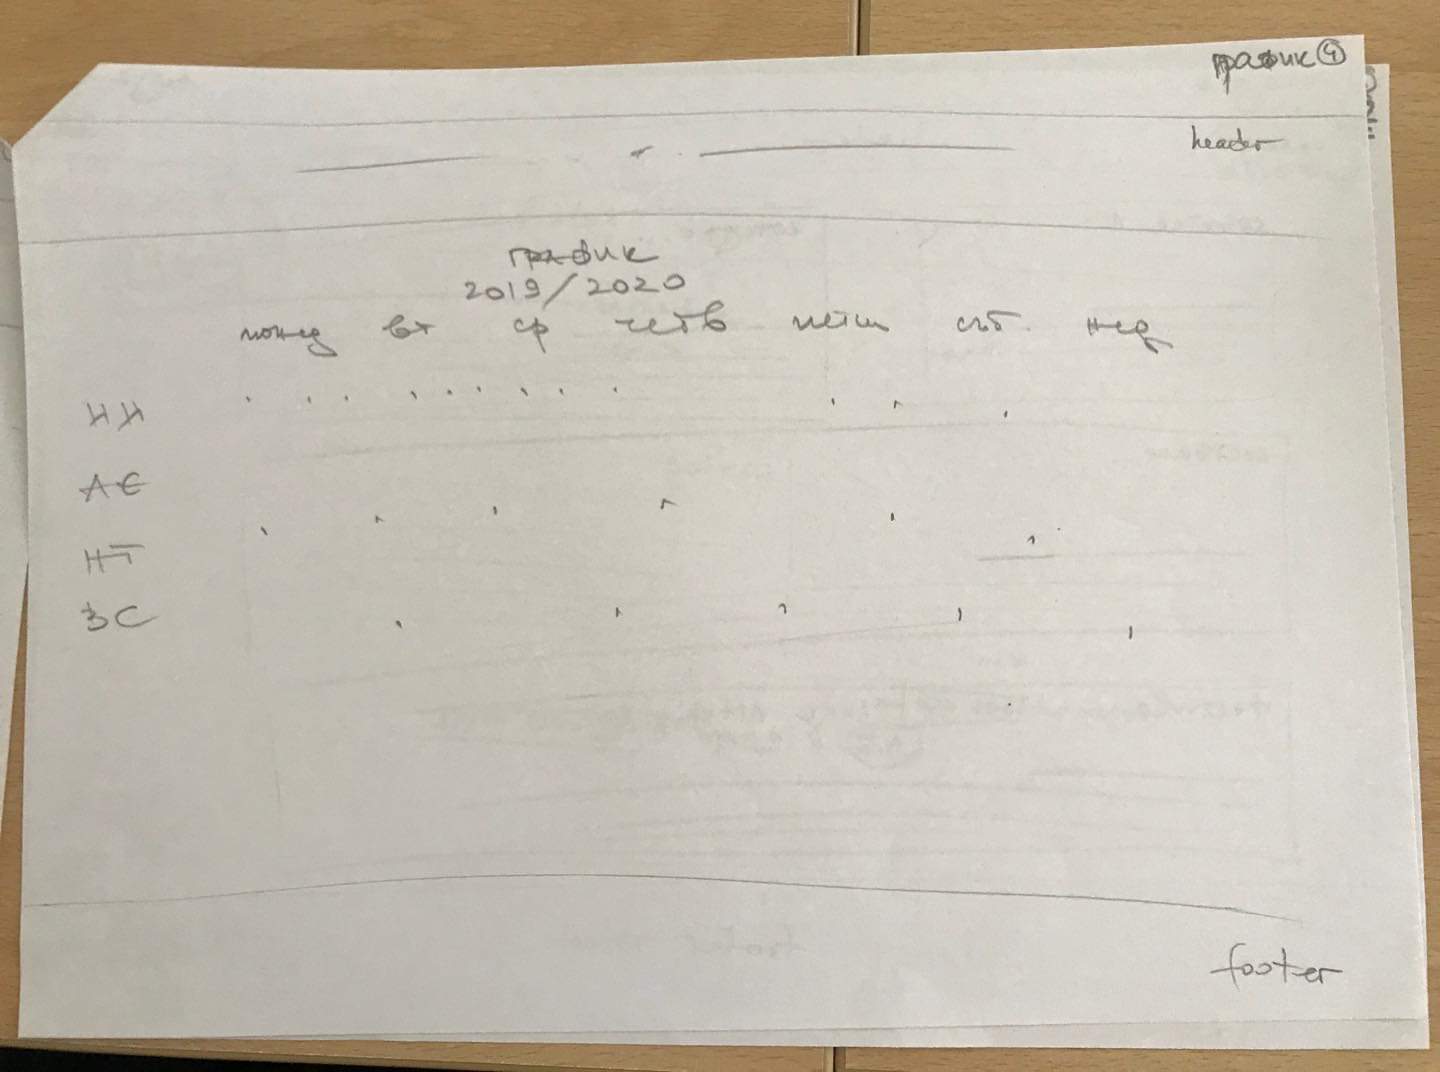 график ④
header
график
2019/2020
понед вт ср четв петък съб. нед
НН
АЕ
НТ
ЗС
footer